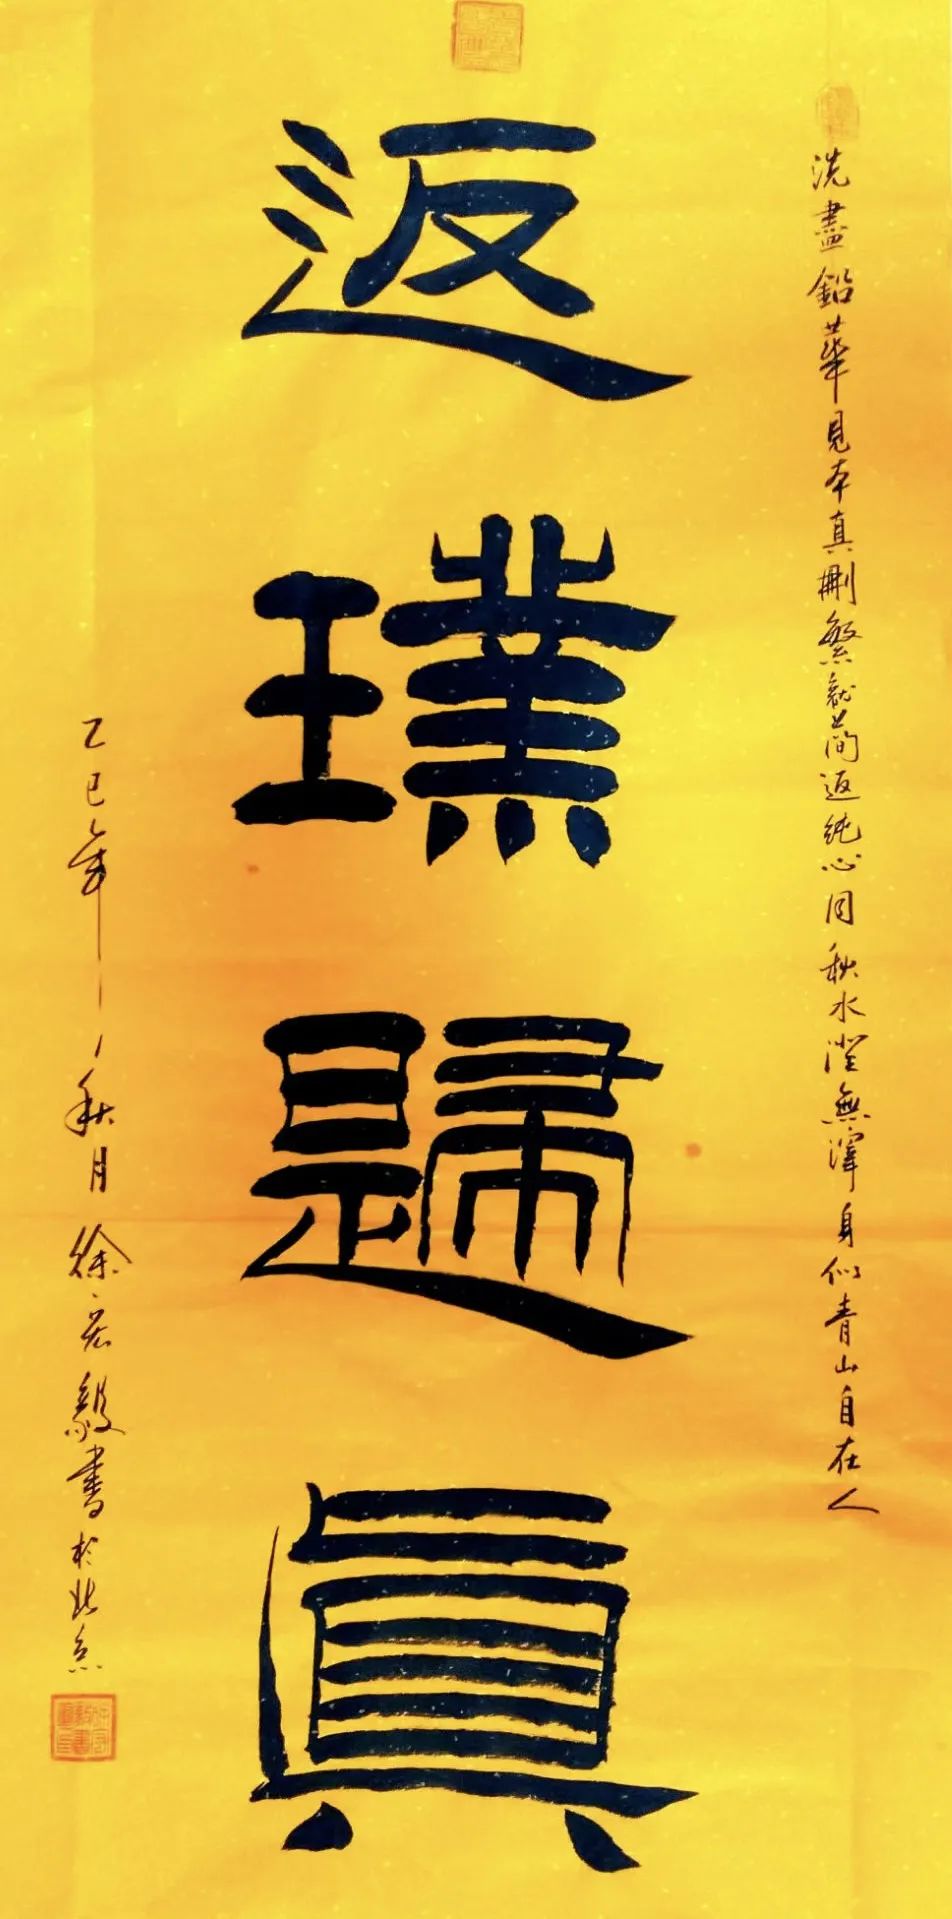 洗盡鉛華見本真刪繁就簡返純心同秋水澄無滓身似青山自在人
返璞歸真
乙巳年秋月徐宏毅書於北京